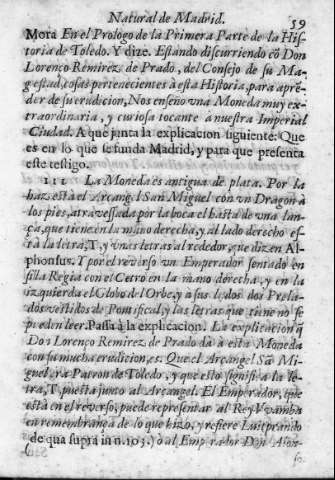 Natural de Madrid. 59
Mora En el Prologo de la Primera Parte de la His-
toria de Toledo. Y dize. Estando discurriendo cõ Don
Lorenço Remirez de Prado, del Consejo de su Ma-
gestad, cosas pertenecientes à esta Historia, para aprẽ-
der de su erudicion, Nos enseño vna Moneda muy ex-
traordinaria, y curiosa tocante a nuestra Imperial
Ciudad. A que junta la explicacion siguiente: Que
es en lo que se funda Madrid, y para que presenta
este testigo.
111 La Moneda es antigua de plata. Por la
haz està el Arcangel San Miguel con vn Dragon à
los pies, atravessada por la boca el hasta de vna lan-
ça, que tiene en la mano derecha, y al lado derecho es-
tà la letra, T, y vnas letras al rededor, que dizen Al-
phonsus. Y por el reverso vn Emperador sentado en
silla Regia con el Cetro en la mano derecha, y en la
izquierda el Globo del Orbe, y à sus lados dos Prela-
dos vestidos de Pontifical, y las letras que tiene no se
pueden leer. Passa à la explicacion. La explicacion q̃
Don Lorenço Remirez de Prado dà à esta Moneda
con su mucha erudicion, es. Que el Arcangel Sã Mi-
guel era Patron de Toledo, y que esto signifi a la le-
tra, T, puesta junto al Arcangel. El Emperador, que
està en el reverso, puede representar al Rey Vvamba
en remembrança de lo que hizo, y refiere Luitprando
de qua supra in n. 103. ò al Emperador Don Alon-
so,